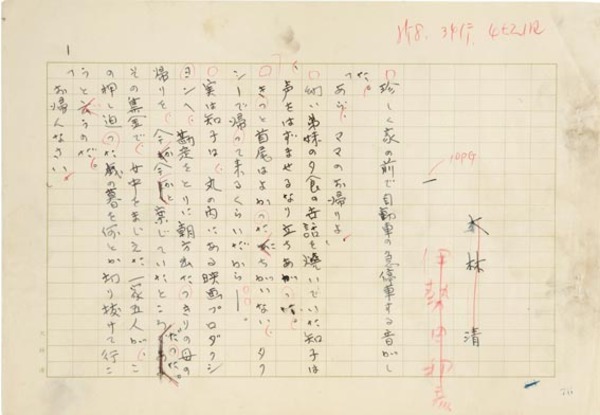 林 清
一
珍しく家の前で自動車の急停車する音がし
た。
「あら、ママのお帰りよ」
幼い弟妹の夕食の世話を焼いでいた知子は
声をはずませるなり立ちあがった。
きっと首尾はよかったにちがいない タク
シーで帰って来るくらいだから――。
実は知子は、丸の内にある映画プロダクシ
ョンへ 勘定をとりに朝方出たっきりの母の
帰りを 今か今かと 案じていたところだった。
その集金で 女中をまじえた一家五人がこ
の押し迫った歳の暮を何とか切り抜けて行こ
うと云うのだ。
「お帰んなさい」